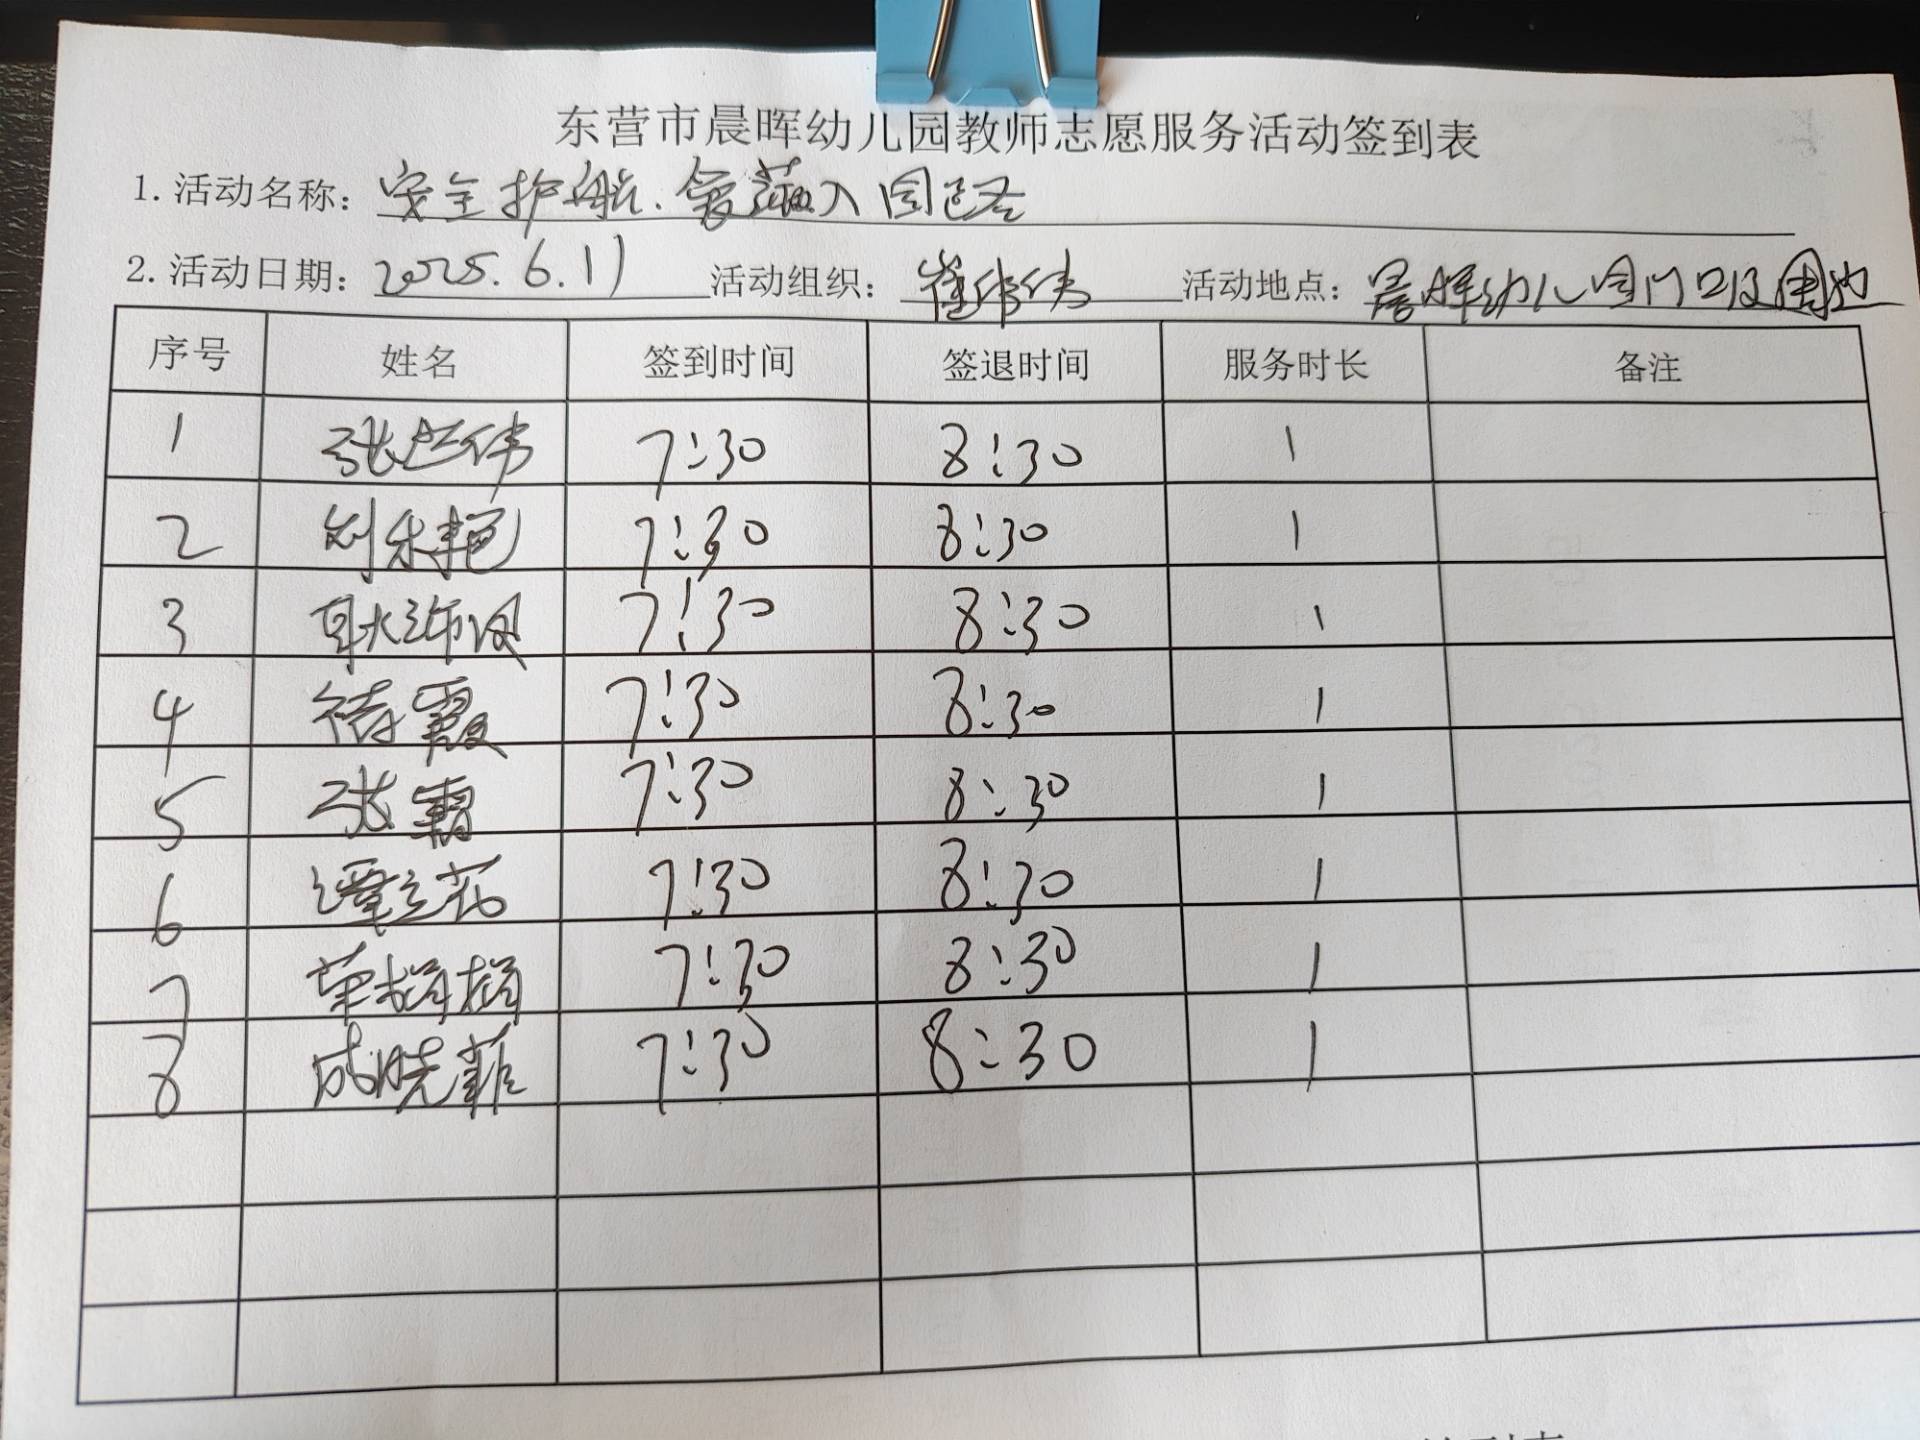 东营市晨晖幼儿园教师志愿服务活动签到表
1. 活动名称: 安全护航.爱蕴入园路
2. 活动日期: 2025.6.11 活动组织: 崔伟伟 活动地点: 晨晖幼儿园门口及周边
序号 姓名 签到时间 签退时间 服务时长 备注
1 张 伟 7:30 8:30 1
2 刘 艳 7:30 8:30 1
3 耿 7:30 8:30 1
4 霞 7:30 8:30 1
5 张霜 7:30 8:30 1
6 谭立花 7:30 8:30 1
7 7:30 8:30 1
8 成晓菲 7:30 8:30 1